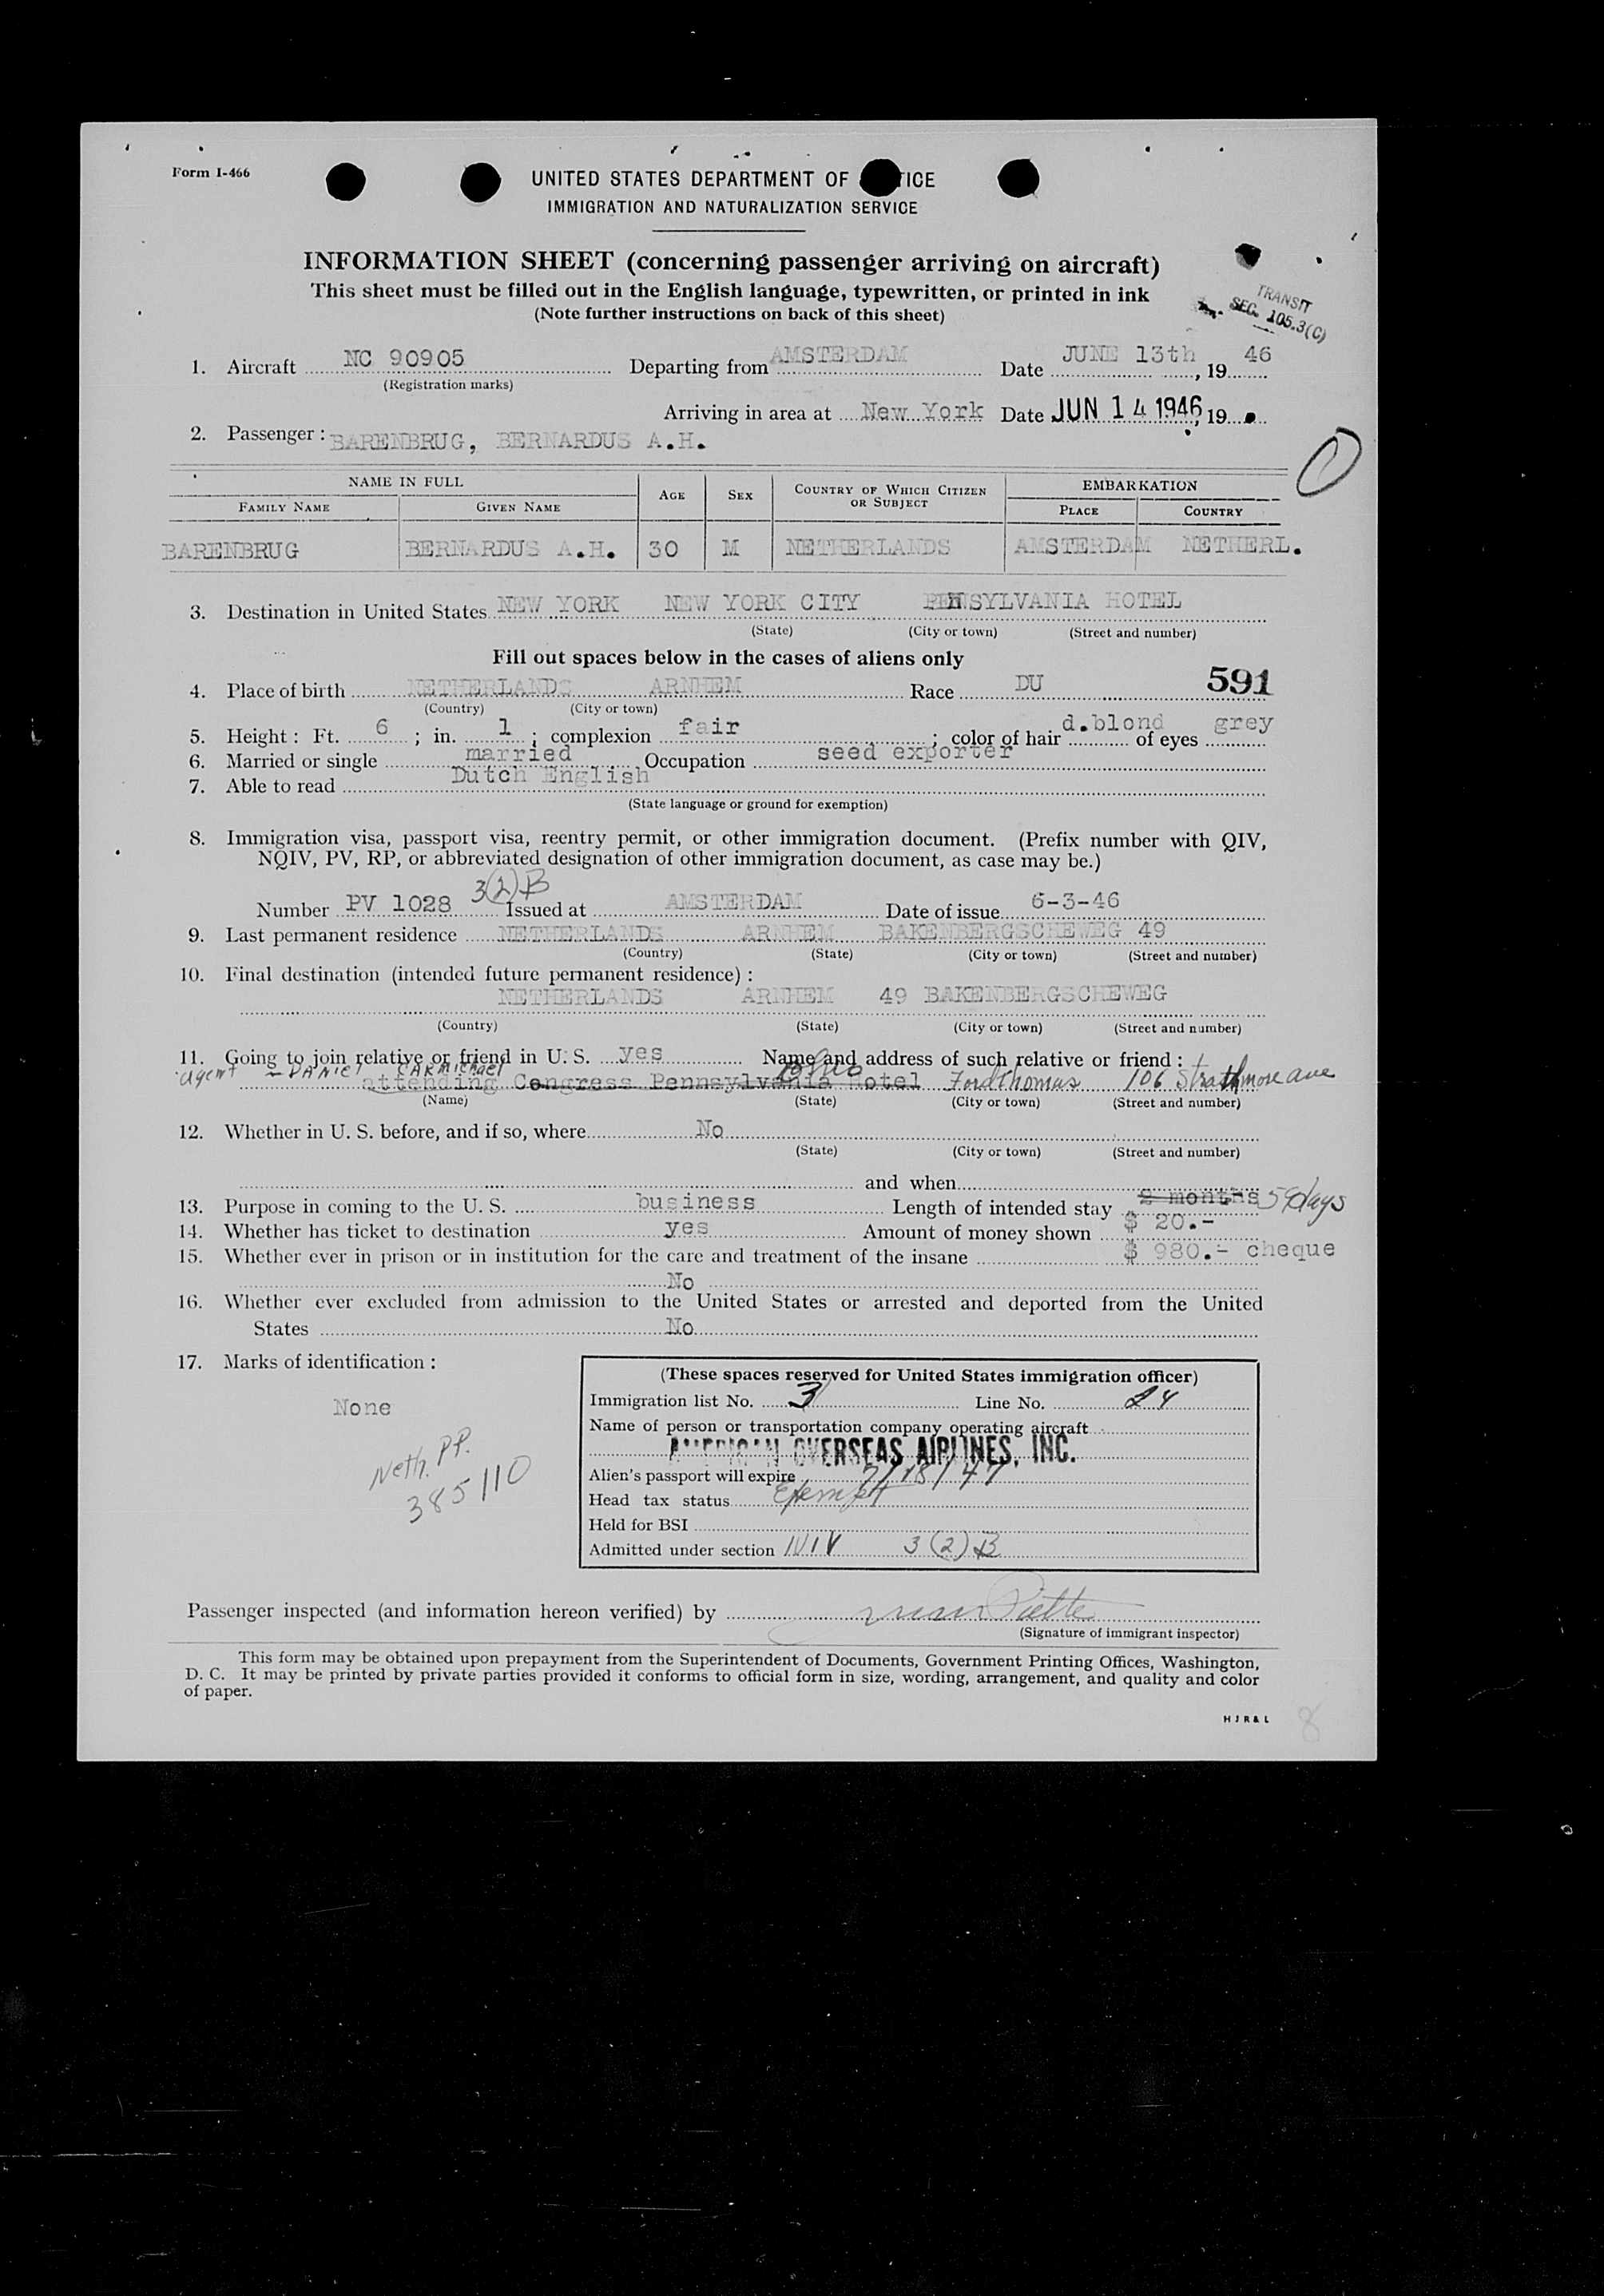 Form I-466
UNITED STATES DEPARTMENT OF TICE
IMMIGRATION AND NATURALIZATION SERVICE
INFORMATION SHEET (concerning passenger arriving on aircraft)
This sheet must be filled out in the English language, typewritten, or printed in ink
(Note further instructions on back of this sheet)
TRANSIT
SEC. 105.3(C)
1. Aircraft NC 90905 Departing from AMSTERDAM Date JUNE 13th, 19 46
(Registration marks)
Arriving in area at New York Date JUN 14 1946, 19
2. Passenger: BARENBRUG, BERNARDUS A.H.
NAME IN FULL AGE SEX COUNTRY OF WHICH CITIZEN OR SUBJECT EMBARKATION
FAMILY NAME GIVEN NAME PLACE COUNTRY
BARENBRUG BERNARDUS A.H. 30 M NETHERLANDS AMSTERDAM NETHERL.
3. Destination in United States NEW YORK NEW YORK CITY PENSYLVANIA HOTEL
(State) (City or town) (Street and number)
Fill out spaces below in the cases of aliens only
591
4. Place of birth NETHERLANDS ARNHEM Race DU
(Country) (City or town)
5. Height: Ft. 6; in. 1; complexion fair; color of hair d.blond of eyes grey
6. Married or single married Occupation seed exporter
7. Able to read Dutch English
(State language or ground for exemption)
8. Immigration visa, passport visa, reentry permit, or other immigration document. (Prefix number with QIV,
NQIV, PV, RP, or abbreviated designation of other immigration document, as case may be.)
3(2)B
Number PV 1028 Issued at AMSTERDAM Date of issue 6-3-46
9. Last permanent residence NETHERLANDS ARNHEM BAKENBERGSCHEWEG 49
(Country) (State) (City or town) (Street and number)
10. Final destination (intended future permanent residence):
NETHERLANDS ARNHEM 49 BAKENBERGSCHEWEG
(Country) (State) (City or town) (Street and number)
11. Going to join relative or friend in U. S. yes Name and address of such relative or friend:
agent - DANIEL CARMICHAEL Ohio Ford Thomas 106 Strathmore ave
attending Congress Pennsylvania Hotel
(Name) (State) (City or town) (Street and number)
12. Whether in U. S. before, and if so, where No
(State) (City or town) (Street and number)
and when
13. Purpose in coming to the U. S. business Length of intended stay 2 months 59days
14. Whether has ticket to destination yes Amount of money shown $ 20.-
15. Whether ever in prison or in institution for the care and treatment of the insane $ 980.- cheque
No
16. Whether ever excluded from admission to the United States or arrested and deported from the United
States No
17. Marks of identification:
None
Neth. PP.
385110
(These spaces reserved for United States immigration officer)
Immigration list No. 3 Line No. 24
Name of person or transportation company operating aircraft
AMERICAN OVERSEAS AIRLINES, INC.
Alien's passport will expire 2/18/47
Head tax status Exempt
Held for BSI
Admitted under section NIV 3(2)B
Passenger inspected (and information hereon verified) by
(Signature of immigrant inspector)
This form may be obtained upon prepayment from the Superintendent of Documents, Government Printing Offices, Washington,
D. C. It may be printed by private parties provided it conforms to official form in size, wording, arrangement, and quality and color
of paper.
H J R & L
8